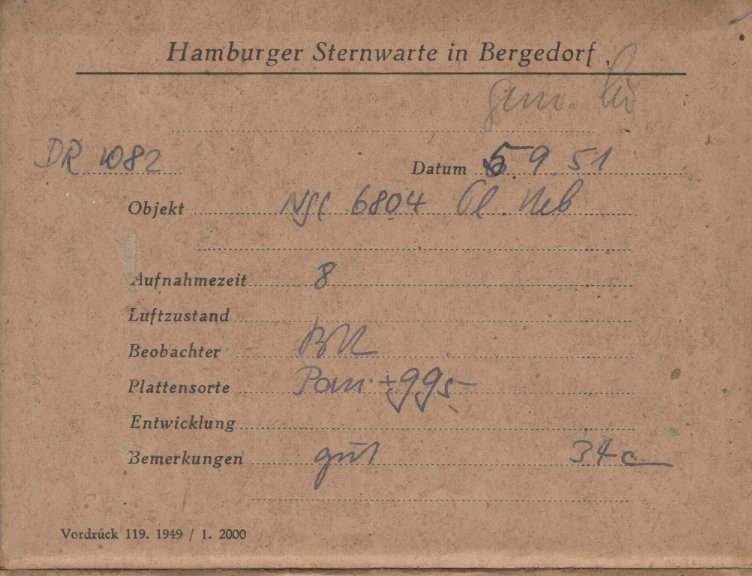 Hamburger Sternwarte in Bergedorf.
DR 1082 Datum 5.9.51
Objekt NGC 6804 Pl. Neb
Aufnahmezeit 8
Luftzustand
Beobachter
Plattensorte Pan. + gg5
Entwicklung
Bemerkungen gut 34c
Vordruck 119. 1949 / 1. 2000